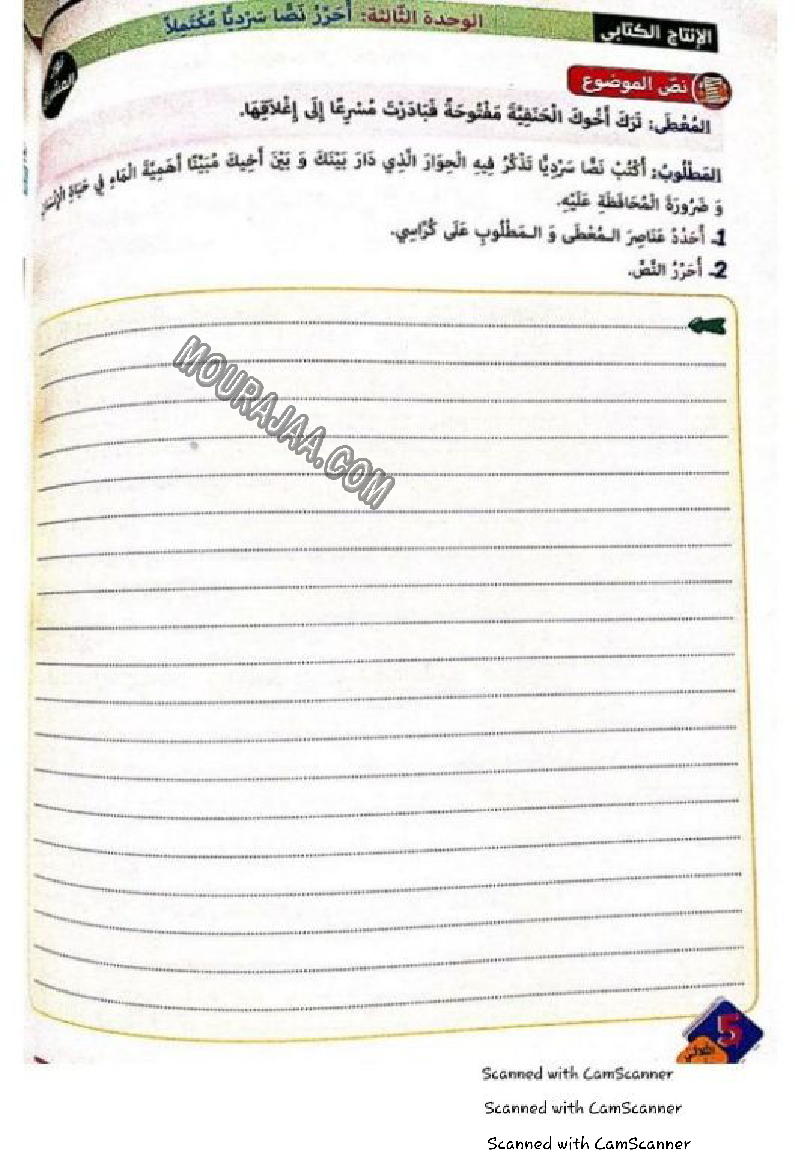 الإنتاج الكتابي
الوحدة الثّالثة: أُحَرِّرُ نَصًّا سَرْدِيًّا مُكْتَمِلاً
نصّ الموضوع
المُعْطَى: تَرَكَ أَخُوكَ الْحَنَفِيَّةَ مَفْتُوحَةً فَبَادَرْتَ مُسْرِعًا إِلَى إِغْلَاقِهَا.
المَطْلُوبُ: أُكْتُبْ نَصًّا سَرْدِيًّا تَذْكُرُ فِيهِ الْحِوَارَ الَّذِي دَارَ بَيْنَكَ وَ بَيْنَ أَخِيكَ مُبَيِّنًا أَهَمِيَّةَ الْمَاءِ فِي حَيَاةِ
وَ ضَرُورَةَ الْمُحَافَظَةِ عَلَيْهِ.
1ـ أُحَدِّدُ عَنَاصِرَ الـمُعْطَى وَ الـمَطْلُوبِ عَلَى كُرَّاسِي.
2ـ أُحَرِّرُ النَّصَّ.
MOURAJAA.COM
5
Scanned with CamScanner
Scanned with CamScanner
Scanned with CamScanner